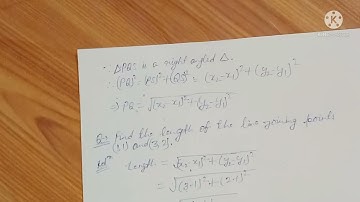 • ΔPQS is a right angled Δ.
∴ (PQ)² = (PS)² + (QS)² = (x₂-x₁)² + (y₂-y₁)²
⇒ PQ = √(x₂-x₁)² + (y₂-y₁)²
Find the length of the line joining points
(1,1) and (3,2).
Length = √(x₂-x₁)² + (y₂-y₁)²
= √(2-1)² + (2-1)²
KINEMASTER